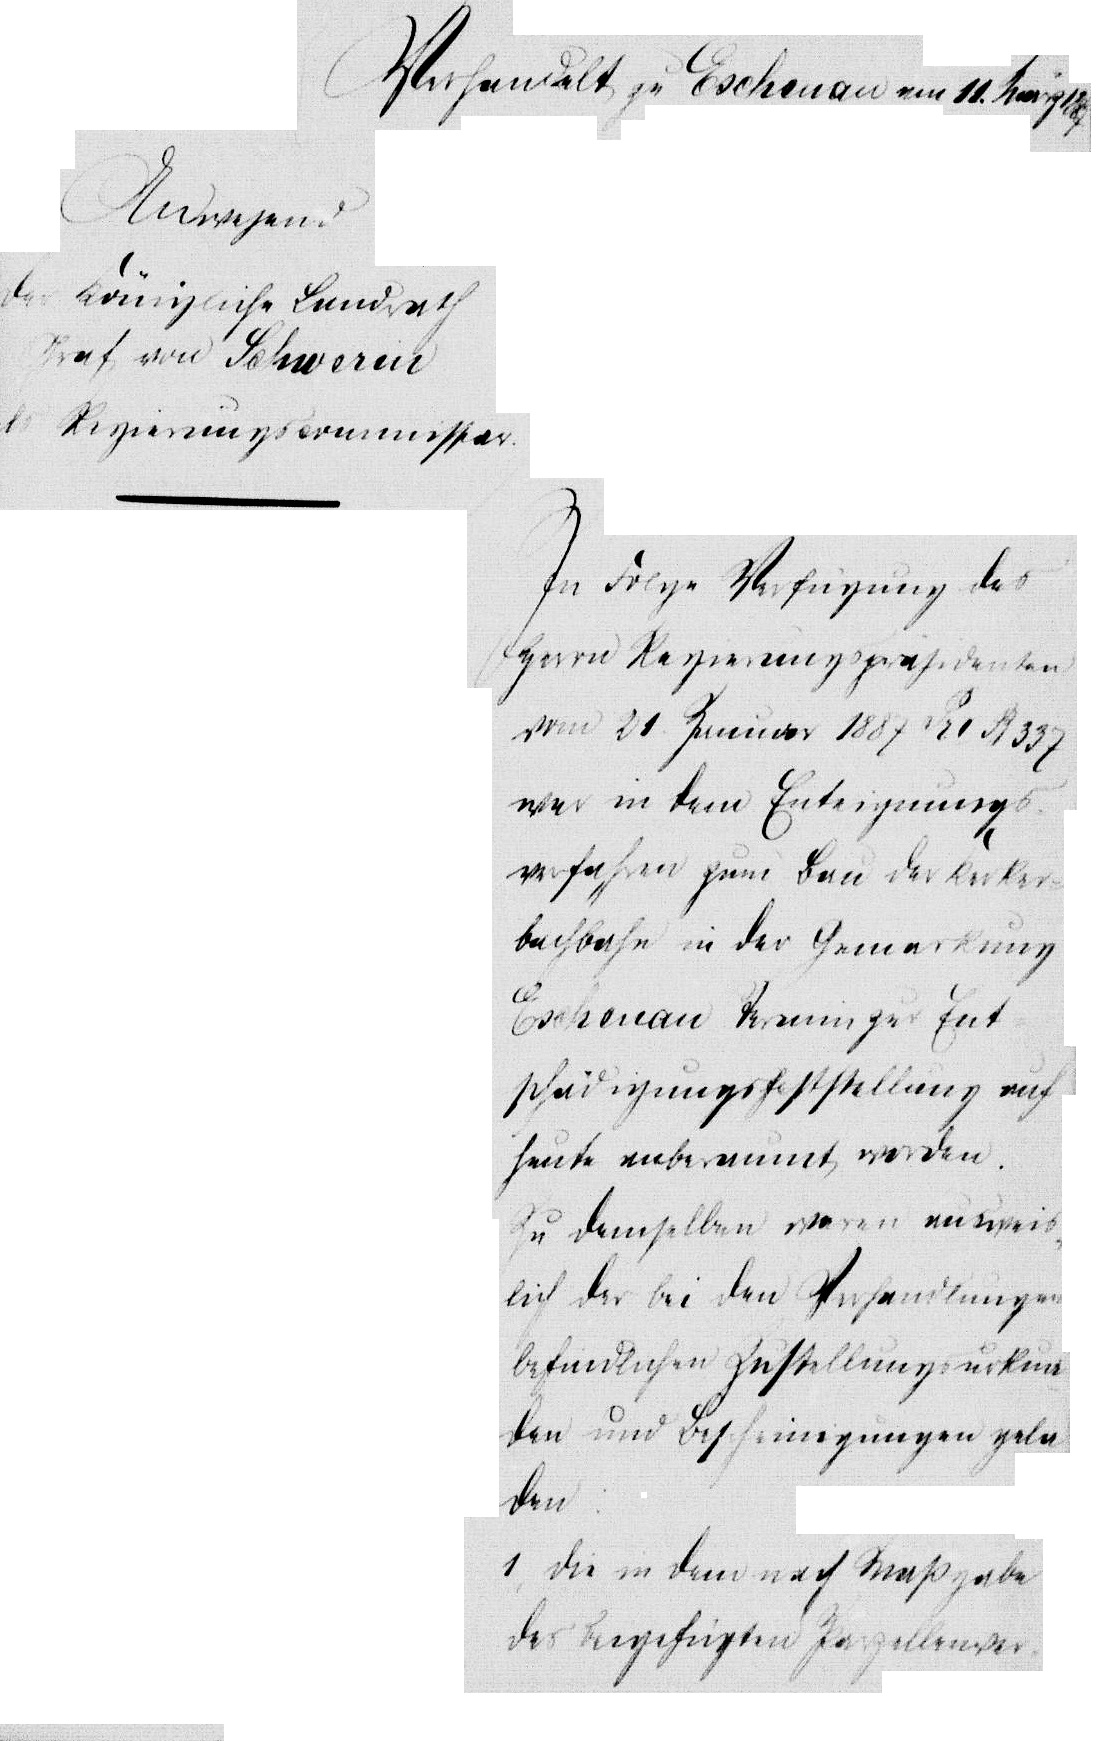 Verhandelt zu Eschenau am 11. März 1887
Anwesend
Der Königliche Landrath
Graf von Schwerin
als Regierungscommissar.
In Folge Verfügung des
Herrn Regierungspräsidenten
vom 21. Januar 1887 Pr. A 337
war in dem Enteignungs-
verfahren zum Bau der Kerker-
bachbahn in der Gemarkung
Eschenau Termin zur Ent-
schädigungsfeststellung auf
heute anberaumt worden.
Zu demselben waren ausweis-
lich der bei den Verhandlungen
befindlichen Zustellungsurkun-
den und Bescheinigungen gela
den :
1, die in dem nach Maßgabe
des beigefügten Parzellenver-